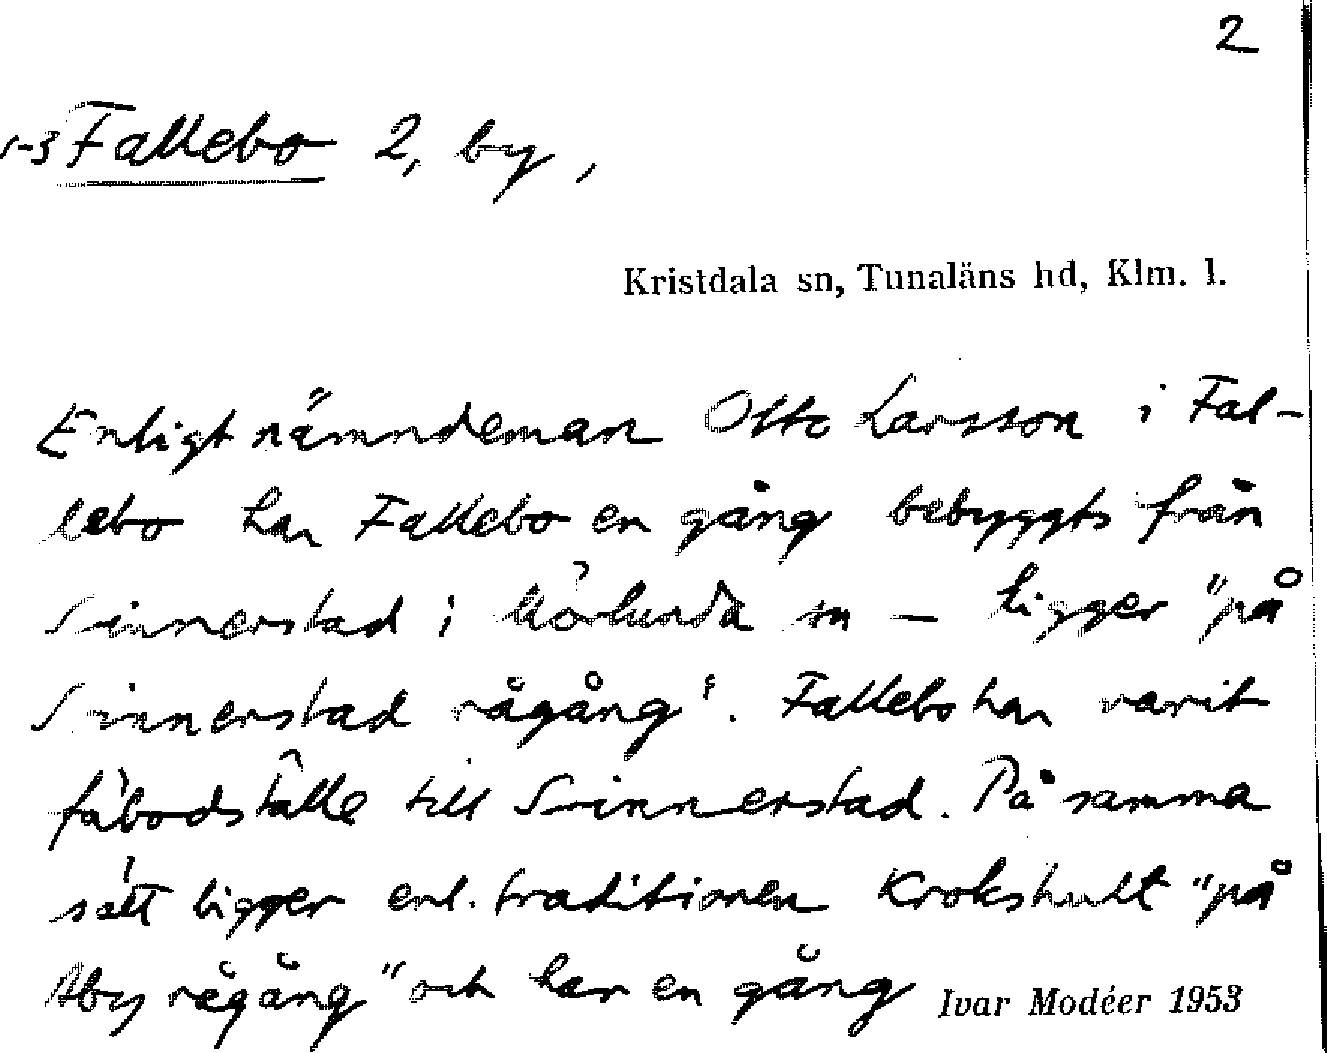 2
1-3 Fallebo 2, by,
Kristdala sn, Tunaläns hd, Klm. l.
Enligt nämndeman Otto Larsson i Fal-
lebo har Fallebo en gång bebyggts från
Sinnerstad i Mörlunda sn – ligger "på
Sinnerstad rågång". Fallebo har varit
fäbodställe till Sinnerstad. På samma
sätt ligger enl. traditionen Krokshult "på
Åby rågång" och har en gång
Ivar Modéer 1953